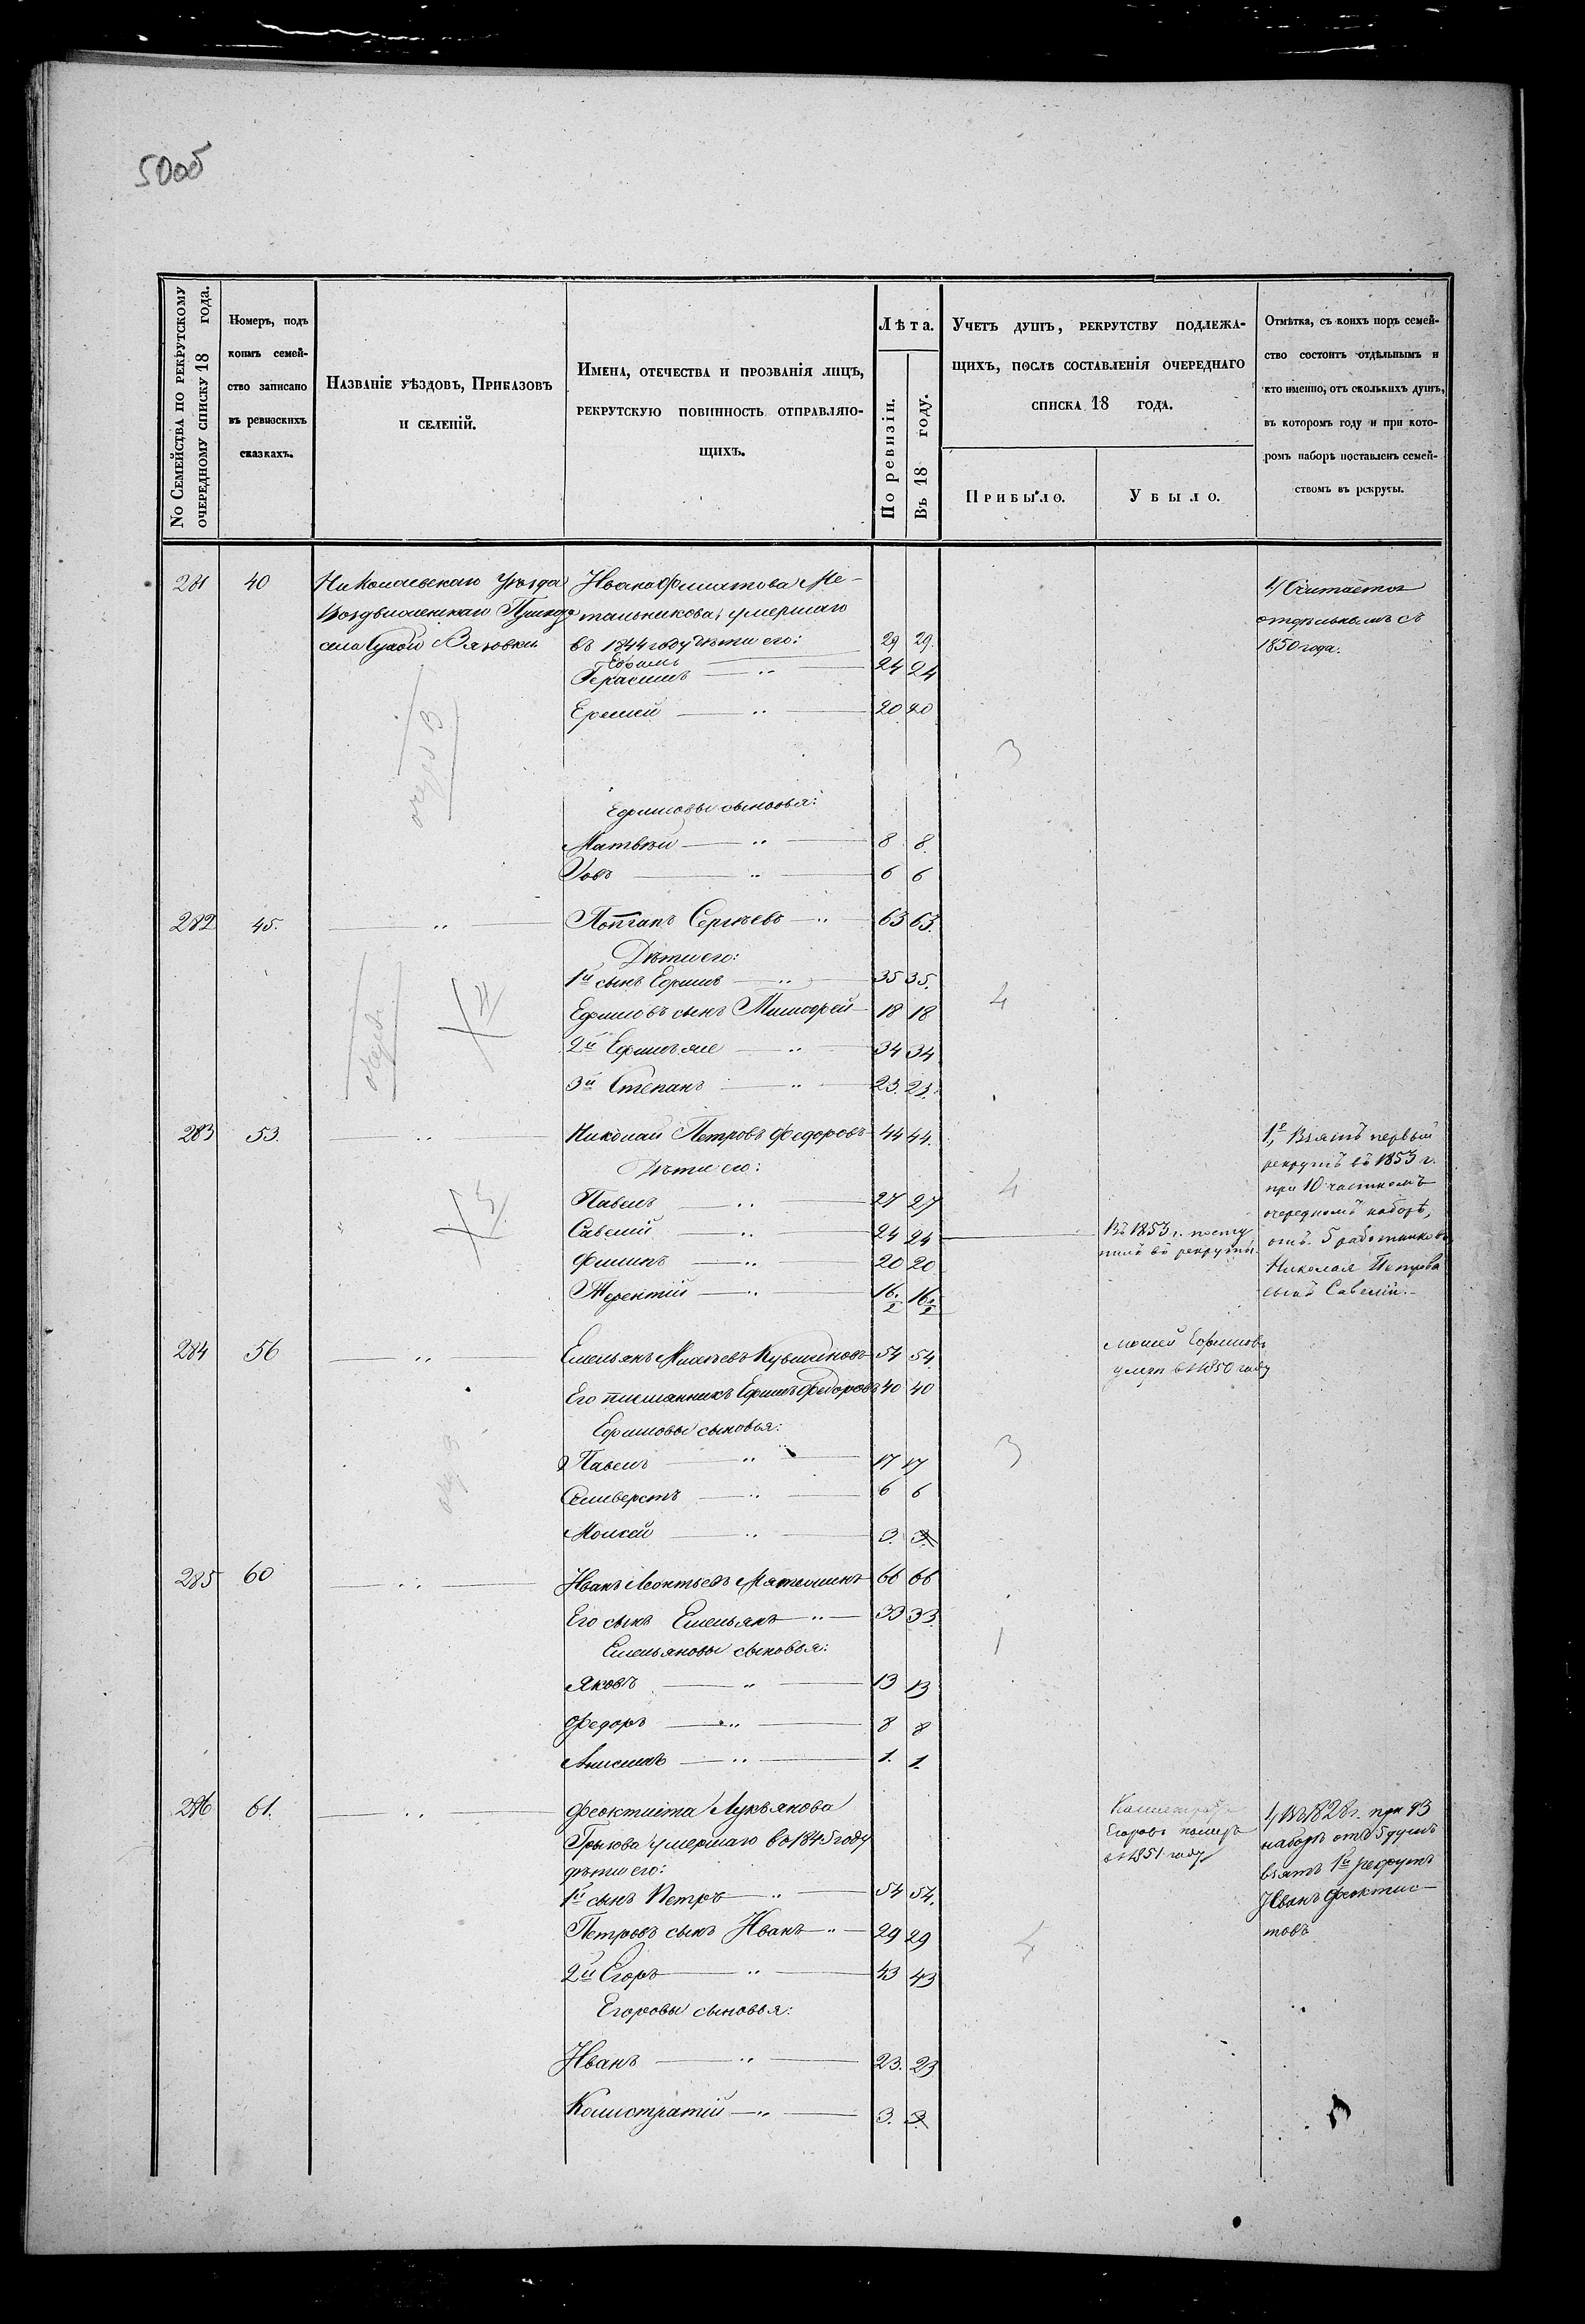 50об
№ Семейства по рекрутскому
очередному списку 18 года.
Номеръ, подъ
коимъ семей-
ство записано
въ ревизскихъ
сказкахъ.
Названіе уѣздовъ, Приказовъ
и селеній.
Имена, отечества и прозванія лицъ,
рекрутскую повинность отправляю-
щихъ.
Лѣта.
По ревизіи.
Въ 18 году.
Учетъ душъ, рекрутству подлежа-
щихъ, послѣ составленія очереднаго
списка 18 года.
Прибыло.
Убыло.
Отмѣтка, съ коихъ поръ семей-
ство состоитъ отдѣльнымъ и
кто именно, отъ сколькихъ душъ,
въ которомъ году и при кото-
ромъ наборѣ поставленъ семей-
ствомъ въ рекруты.
281 40 Николаевскаго Уѣзда Ивана Филатова Ме- 1/ Считается
Воздвиженскаго Приказа тальникова, умершаго отдѣльнымъ съ
села Сухой Вязовки въ 1844 году дѣти его: 29 29. 1850 года.
Ефимъ
Герасимъ — „ — 24 24
Еремей — „ — 20 20
3
Ефимовы сыновья:
Матвѣй — „ — 8 8.
Іовъ — „ — 6 6
282 45. — „ — Сергѣевъ — „ 63 63.
Дѣти его:
1й сынъ Ефимъ — „ — 35 35.
Ефимовъ сынъ Тимофей — 18 18
4
2й Ефимъ же — „ — 34 34
3й Степанъ — „ — 23. 23.
283 53. — „ — Николай Петровъ Федоровъ 44 44. 1е, Взятъ первый
Дѣти его: рекрутъ въ 1853 г.
Павелъ — „ — 27 27 4 при 10 частномъ
очередномъ наборѣ,
Савелий — „ — 24 24 — Въ 1853 г. посту отъ 5 работниковъ
пилъ въ рекруты.
Филипъ — „ — 20 20 Николая Петрова
Терентій — „ — 16 ½ 16 ½ сынъ Савелий.
284 56 — „ — Емельянъ 54 54. Моисей Ефимовъ
умеръ въ 1850 году
Его племянникъ Ефимъ Федоровъ 40 40
Ефимовы сыновья:
Павелъ — „ — 17 17 3
Селиверстъ — „ — 6 6
Моисей — „ — 3. 3.
285 60 — „ — Иванъ Леонтьевъ 66 66
Его сынъ Емельянъ — „ — 33 33.
1
Емельяновы сыновья:
Яковъ — „ — 13 13
Федоръ — „ — 8 8
Анисимъ — „ — 1. 1.
286 61. — „ — Феоктиста Лукьянова 1, Въ 1828 г. при 93
умершаго въ 1845 году Егоровъ померъ наборѣ отъ 5 душъ
дѣти его: въ 1851 году взятъ 1й рекрутъ
1й сынъ Петръ — „ — 54 54. Иванъ Феоктис-
Петровъ сынъ Иванъ — „ — 29 29 4 товъ
2й Егоръ — „ — 43 43
Егоровы сыновья:
Иванъ — „ — 23. 23
Калистратій — „ — 3. 3